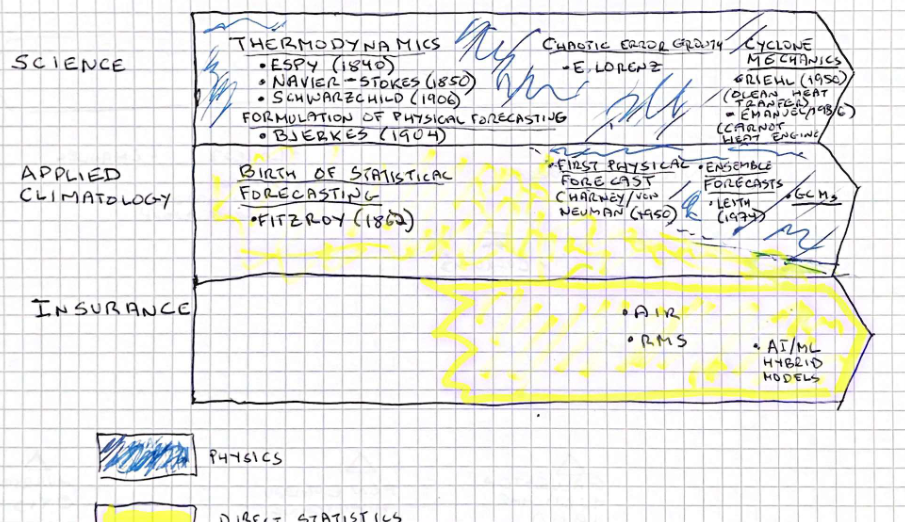 SCIENCE
THERMODYNAMICS
• ESPY (1840)
• NAVIER-STOKES (1850)
• SCHWARZCHILD (1906)
FORMULATION OF PHYSICAL FORECASTING
• BJERKES (1904)
CHAOTIC ERROR GROWTH
• E. LORENZ
CYCLONE
MECHANICS
• RIEHL (1950)
(OCEAN HEAT
TRANFER)
• EMANUEL (1986)
(CARNOT
HEAT ENGINE)
APPLIED
CLIMATOLOGY
BIRTH OF STATISTICAL
FORECASTING
• FITZROY (1862)
• FIRST PHYSICAL
FORECAST
CHARNEY/VON
NEUMAN (1950)
• ENSEMBLE
FORECASTS
• LEITH
(1974)
• GCMs
INSURANCE
• AIR
• RMS
• AI/ML
HYBRID
MODELS
PHYSICS
DIRECT STATISTICS